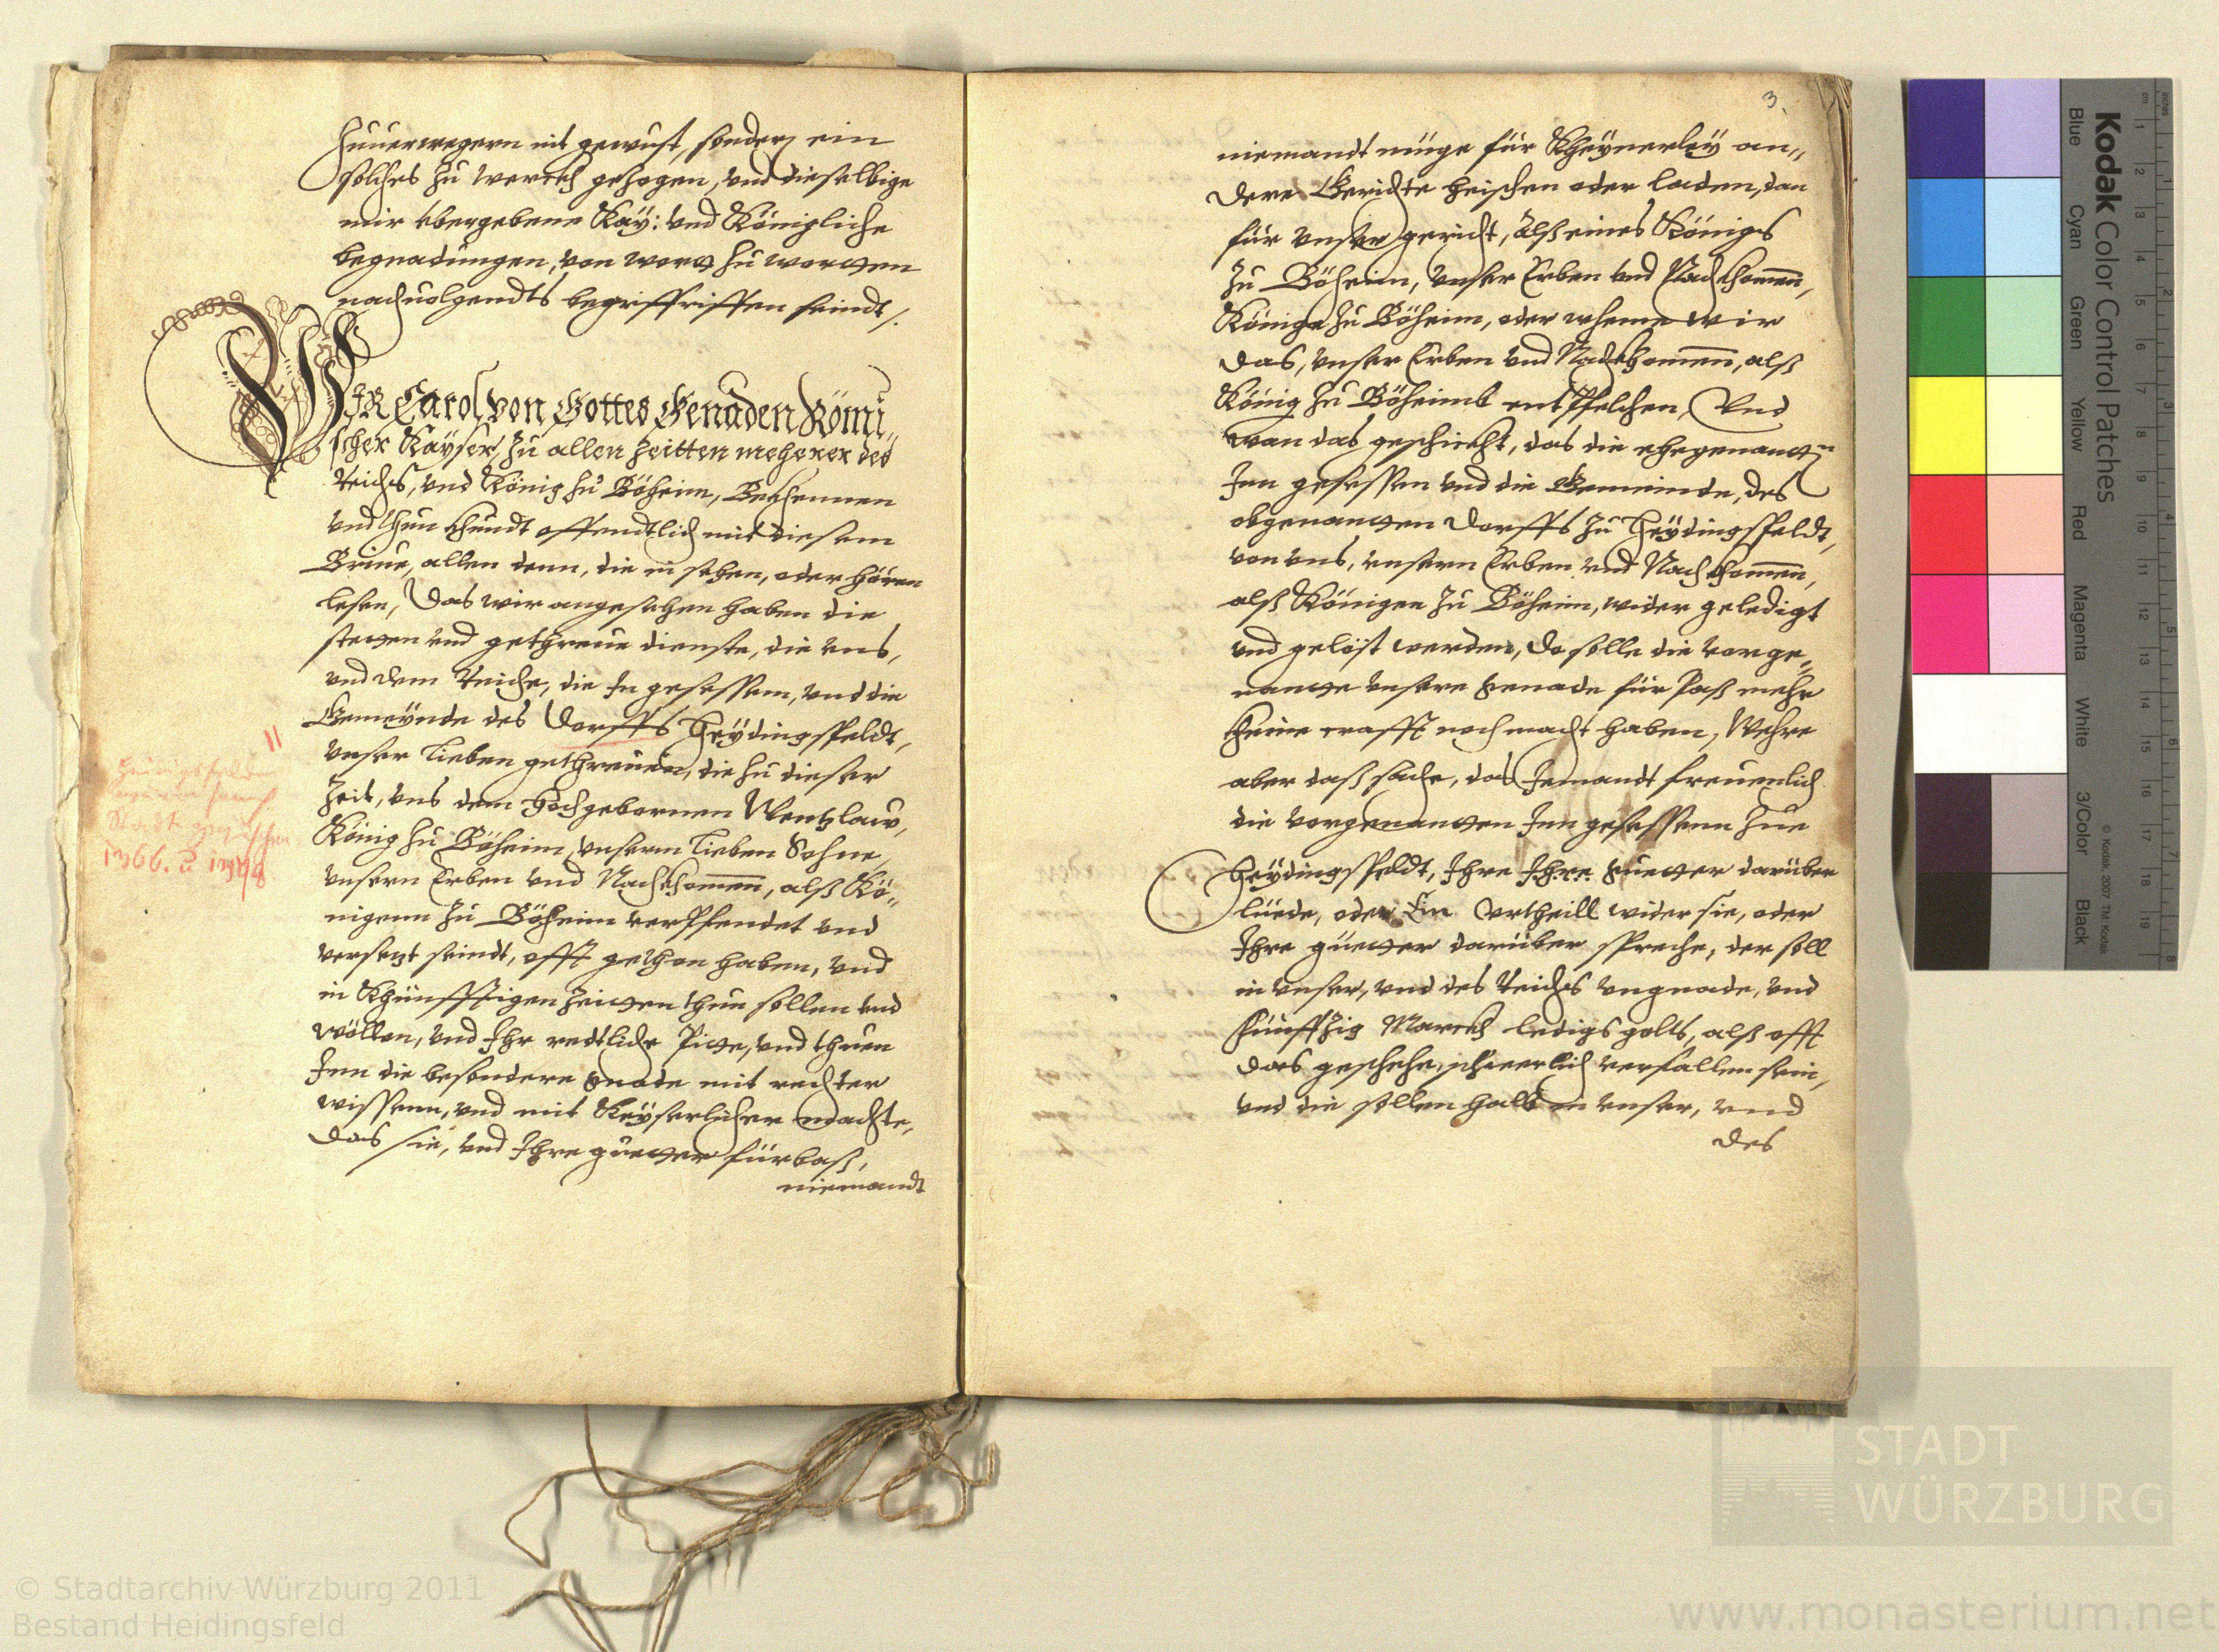 zuuerwegern nit gewust, sondern ein
solches zu werckh gezogen, vnd dieselbige
mir vbergebene Kay: vnd Königliche
begnadungen, von wortt zu wortten
nachuolgendts begriffriffen seindt /.
WIR Carol von Gottes Genaden Römi„
scher Kayser, zu allen Zeitten meherer des
Reichs, vnd König zu Böheim, Bekhennen
vnd thun khundt offendtlich mit diesem
Brieue, allen denn, die in sehen, oder hören
lesen, Das wir angesehen haben die
stetten vnd gethreue dienste, die vns,
vnd dem Reiche, die In gesessenn, vnd die
Gemeynde des Dorffs Heydingsfeldt,
vnser Lieben gethreuen, die zu dieser
Zeit, vns dem Hochgebornen Wentzlaw,
König zu Böheim, vnserm Lieben Sohne,
vnsern Erben vnd Nachkhomenn, alß Kö„
nigenn zu Böheim verpfendet vnd
versetzt seindt, offt gethan haben, vnd
in Khünfftigen Zeitten thun sollen vnd
wöllen, vnd Ihr redtliche Pitte, vnd thuen
Inn die besondere gnade mit rechter
wissenn, vnd mit Keyserlicher machte,
das sie, vnd Ihre guetter fürbaß,
niemandt
Stadt
1366. u.
3.
niemandt müge für Kheynerley an„
dere Gerichte heischen oder laden, dan
für vnser gericht, alß eines Königs
zu Böheim, vnser Erben vnd Nachkhomenn,
Könige zu Böheim, oder wheme wir
das, vnser Erben vnd Nachkhomenn, alß
König zu Böheimb entpfelchen, Vnd
wan das geschicht, das die ehegenantt
Inn gesessen vnd die Gemeinde, des
obgenantten Dorffs zu Heydingsfeldt,
von vns, vnsern Erben vnd Nachkhomenn,
alß Königen zu Böheim, wider geledigt
vnd gelöst werden, Do solle die vorge„
nantte vnsere genade fürpaß mehr
kheine crafft noch macht haben, Wehre
aber daß sache, das Jemandt freuenlich
die vorgenantten Inn gesessenn zue
Heydingsfeldt, Ihre Ihre guetter darüber
lüede, oder Ein vrtheill wider sie, oder
Ihre güetter darüber spreche, der soll
in vnser, vnd des Reichs vngnade, vnd
fünffzig Marckh ledigs golts, alß offt
das geschehe, schwerlich verfallen sein,
vnd die sollen halb in vnser, vnd
des
Kodak Color Control Patches
Blue Cyan Green Yellow Red Magenta White 3/Color Black
© Kodak, 2007 TM: Kodak
STADT
WÜRZBURG
© Stadtarchiv Würzburg 2011
Bestand Heidingsfeld
www.monasterium.net